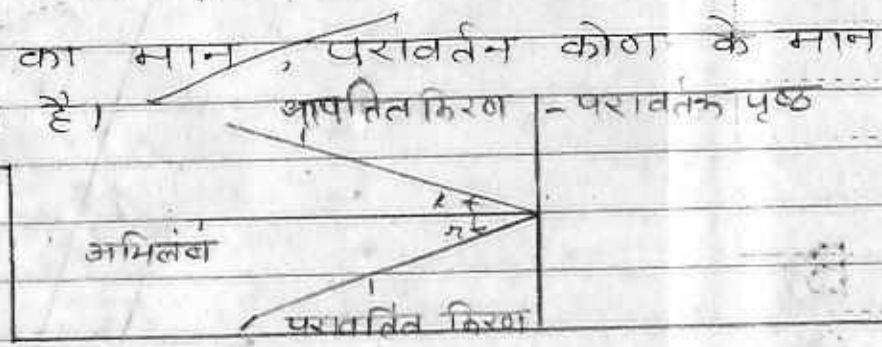 का मान , परावर्तन कोण के मान
है।
आपतित किरण - परावर्तक पृष्ठ
i
r
अभिलंब
परावर्तित किरण